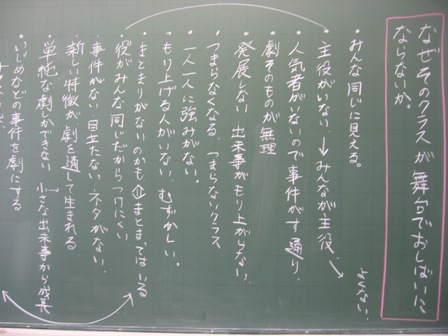 なぜそのクラスが舞台でおしばいに
ならないか。
・みんな同じに見える。
・主役がいない。→みんなが主役。→よくない。
・人気者がいないので事件がす通り。
・劇そのものが無理
・発展しない 出来事がもり上がらない。
・つまらなくなる つまらないクラス
・一人一人に強みがない。
・もり上げる人がいない。むずかしい。
・まとまりがないのかも⇔まとまってはいる
・役がみんな同じだからつけにくい
・事件がない 目立たない ネタがない。
・新しい特徴が劇を通して生まれる
・単純な劇しかできない 小さな出来事から成長
・いじめなどの事件を劇にする